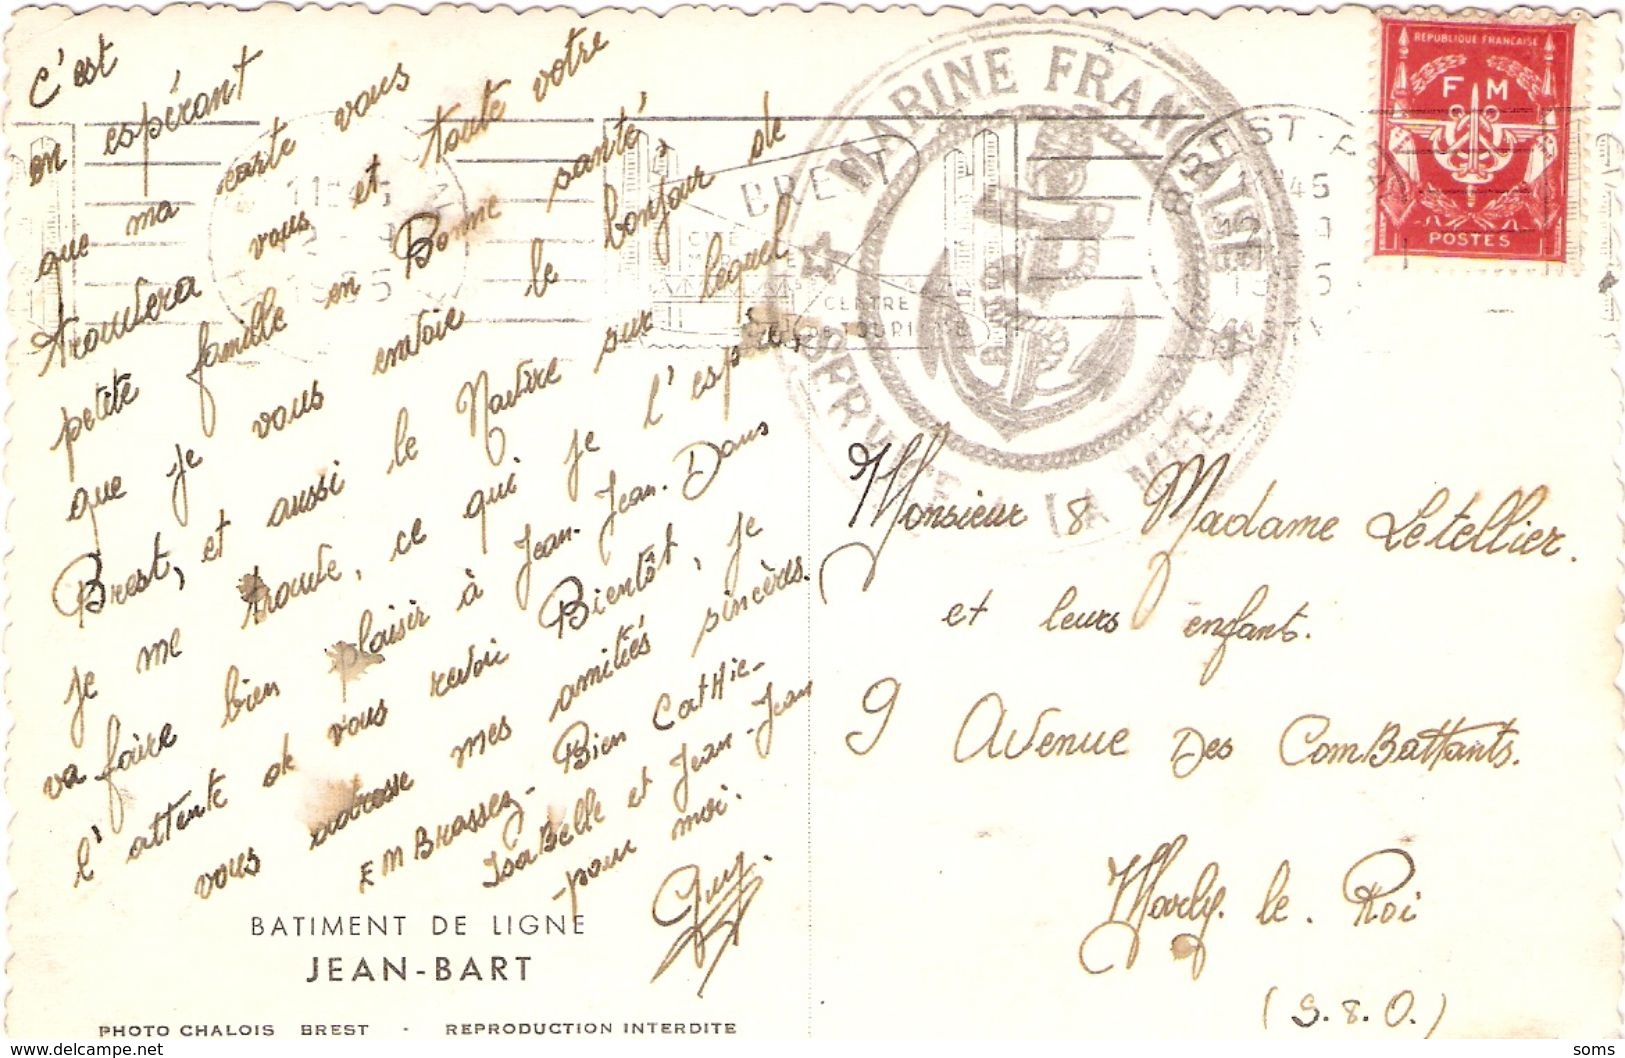 C'est
en espérant
que ma carte vous
trouvera vous et toute votre
petite famille en Bonne santé,
que je vous envoie le bonjour de
Brest, et aussi le Navire sur lequel
je me trouve, ce qui je l'espère,
va faire bien plaisir à Jean-Jean. Dans
l'attente de vous revoir Bientôt, je
vous adresse mes amitiés sincères.
EMBrassez- Bien Cathie-
IsaBelle et Jean-Jean
pour moi.
Guy.
BATIMENT DE LIGNE
JEAN-BART
PHOTO CHALOIS BREST - REPRODUCTION INTERDITE
MARINE FRANÇAISE
SERVICE A LA MER
BREST
CENTRE
DE TOURISME
REPUBLIQUE FRANCAISE
F M
POSTES
Monsieur & Madame Letellier.
et leurs enfants.
9 Avenue Des ComBattants.
Marly. le. Roi
(S. & O.)
delcampe.net
soms